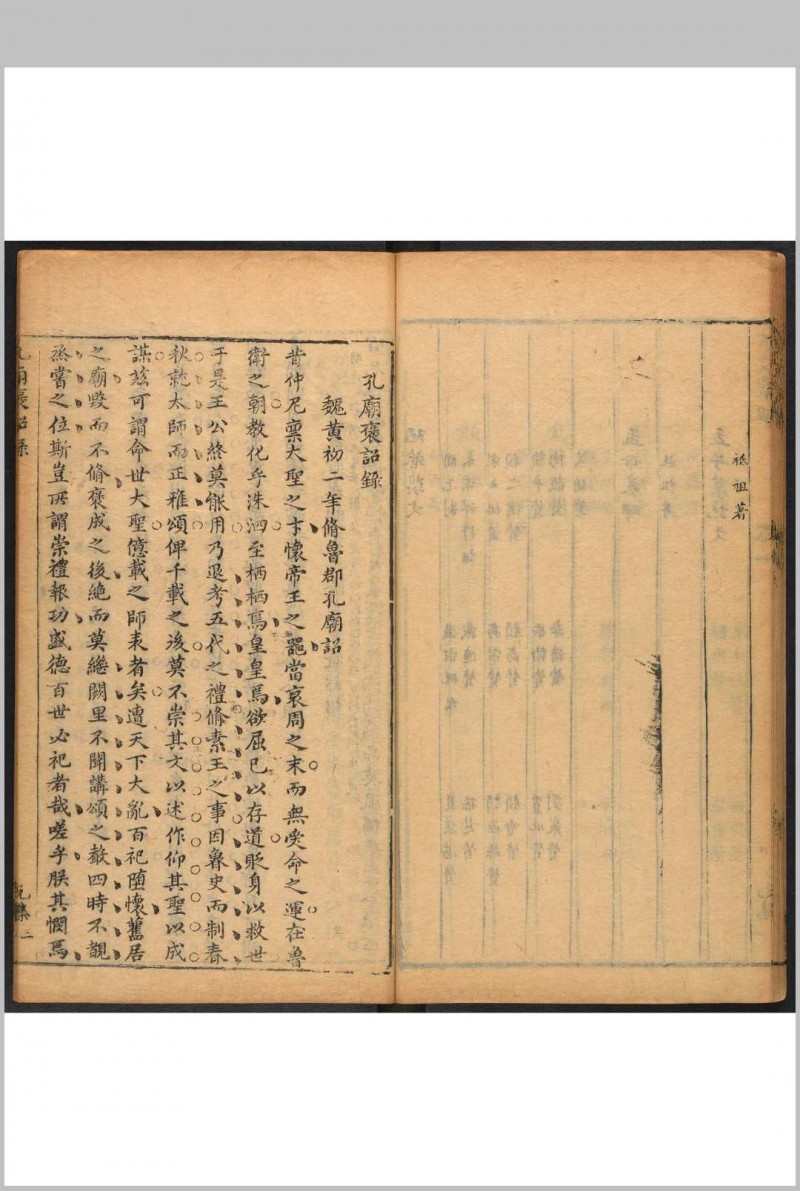 祗詛著
孔廟褒詔錄
魏黃初二年脩魯郡孔廟詔
昔仲尼稟大聖之才懷帝王之器當衰周之末而無受命之運在魯
衛之朝教化乎洙泗至栖栖焉皇皇焉欲屈已以存道貶身以救世
于是王公終莫能用乃退考五代之禮脩素王之事因魯史而制春
秋就太師而正雅頌俾千載之後莫不崇其文以述作仰其聖以成
謀茲可謂命世大聖億載之師表者矣遭天下大亂百祀堕懷舊居
之廟毀而不脩褒成之後絶而莫繼闕里不聞講頌之教四時不覩
烝嘗之位斯豈所謂崇禮報功盛德百世必祀者哉嗟乎朕其憫焉
孔廟褒詔錄
阮集 二